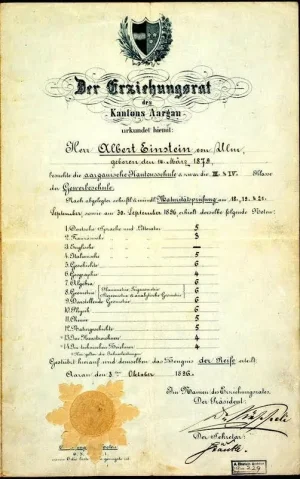 Der Erziehungsrat
des
Kantons Aargau
urkundet hiemit:
Herr Albert Einstein von Ulm,
geboren den 14. März 1879,
besuchte die aargauische Kantonsschule & zwar die III & IV. Klasse
der Gewerbeschule.
Nach abgelegter schriftl. & mündl. Maturitätsprüfung am 18., 19. & 21.
September, sowie am 30. September 1896, erhielt derselbe folgende Noten:
1. Deutsche Sprache und Litteratur 5
2. Französische 3
3. Englische —
4. Italienische 5
5. Geschichte 6
6. Geographie 4
7. Algebra 6
8. Geometrie 6
9. Darstellende Geometrie 6
10. Physik 6
11. Chemie 5
12. Naturgeschichte 5
13. Im Kunstzeichnen 4
14. Im technischen Zeichnen 4
Gestützt hierauf wird demselben das Zeugnis der Reife erteilt.
Aarau den 3ten Oktober 1896.
Im Namen des Erziehungsrates,
Der Präsident:
Der Sekretär: